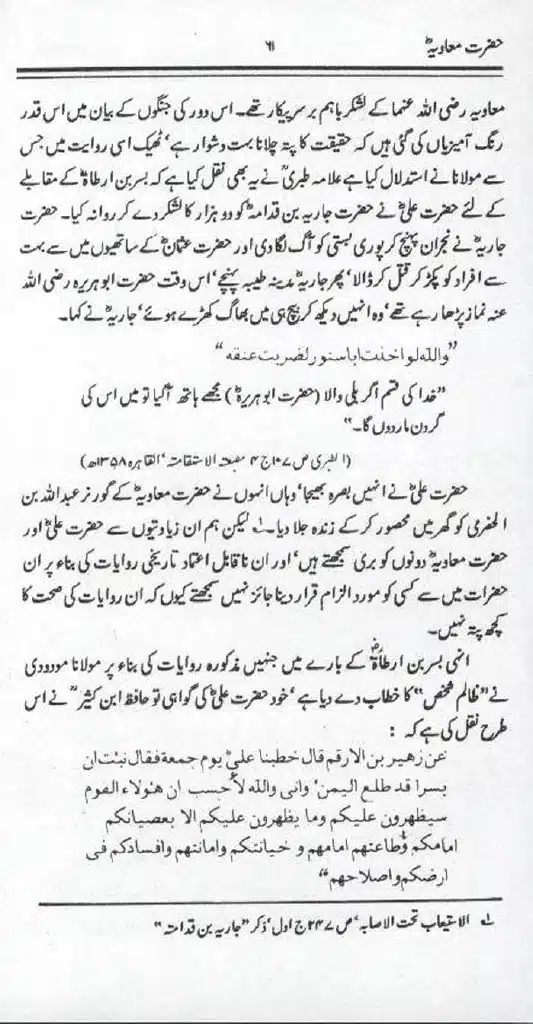 حضرت معاویہؓ
۶۱
معاویہ رضی اللہ عنہما کے لشکر باہم برسرپیکار تھے۔ اس دور کی جنگوں کے بیان میں اس قدر
رنگ آمیزیاں کی گئی ہیں کہ حقیقت کا پتہ چلانا بہت دشوار ہے‘ ٹھیک اسی روایت میں جس
سے مولانا نے استدلال کیا ہے علامہ طبریؒ نے یہ بھی نقل کیا ہے کہ بسر بن ارطاۃؓ کے مقابلے
کے لئے حضرت علیؓ نے حضرت جاریہ بن قدامہؓ کو دو ہزار کا لشکر دے کر روانہ کیا۔ حضرت
جاریہؓ نے نجران پہنچ کر پوری بستی کو آگ لگا دی اور حضرت عثمانؓ کے ساتھیوں میں سے بہت
سے افراد کو پکڑ کر قتل کر ڈالا‘ پھر جاریہؓ مدینہ طیبہ پہنچے‘ اس وقت حضرت ابو ہریرہ رضی اللہ
عنہ نماز پڑھا رہے تھے‘ وہ انہیں دیکھ کر بیچ ہی میں بھاگ کھڑے ہوئے‘ جاریہؓ نے کہا۔
”واللّٰه لو اخذت اباسنور لضربت عنقه“
”خدا کی قسم اگر بلی والا (حضرت ابو ہریرہؓ) مجھے ہاتھ آگیا تو میں اس کی
گردن مار دوں گا۔“
(الطبری ص ۱۰۷ ج ۴ مطبعۃ الاستقامۃ‘ القاہرہ ۱۳۵۸ھ)
حضرت علیؓ نے انہیں بصرہ بھیجا‘ وہاں انہوں نے حضرت معاویہؓ کے گورنر عبداللہ بن
الحضری کو گھر میں محصور کر کے زندہ جلا دیا۔ ؂۱ لیکن ہم ان زیادتیوں سے حضرت علیؓ اور
حضرت معاویہؓ دونوں کو بری سمجھتے ہیں‘ اور ان ناقابل اعتماد تاریخی روایات کی بناء پر ان
حضرات میں سے کسی کو مورد الزام قرار دینا جائز نہیں سمجھتے کیوں کہ ان روایات کی صحت کا
کچھ پتہ نہیں۔
انہی بسر بن ارطاۃؓ کے بارے میں جنہیں مذکورہ روایات کی بناء پر مولانا مودودی
نے ”ظالم شخص“ کا خطاب دے دیا ہے‘ خود حضرت علیؓ کی گواہی تو حافظ ابن کثیرؒ نے اس
طرح نقل کی ہے کہ :
عن زهیر بن الارقم قال خطبنا علیؓ یوم جمعة فقال نبئت ان
بسرا قد طلع الیمن‘ وانی واللّٰه لأحسب ان هولاء القوم
سیظهرون علیکم وما یظهرون علیکم الا بعصیانکم
امامکم وطاعتهم امامهم و خیانتکم وامانتهم وافسادکم فی
ارضکم واصلاحهم“
؂۱ الاستیعاب تحت الاصابہ‘ ص ۲۴۷ ج اول‘ ذکر ”جاریہ بن قدامتہ“